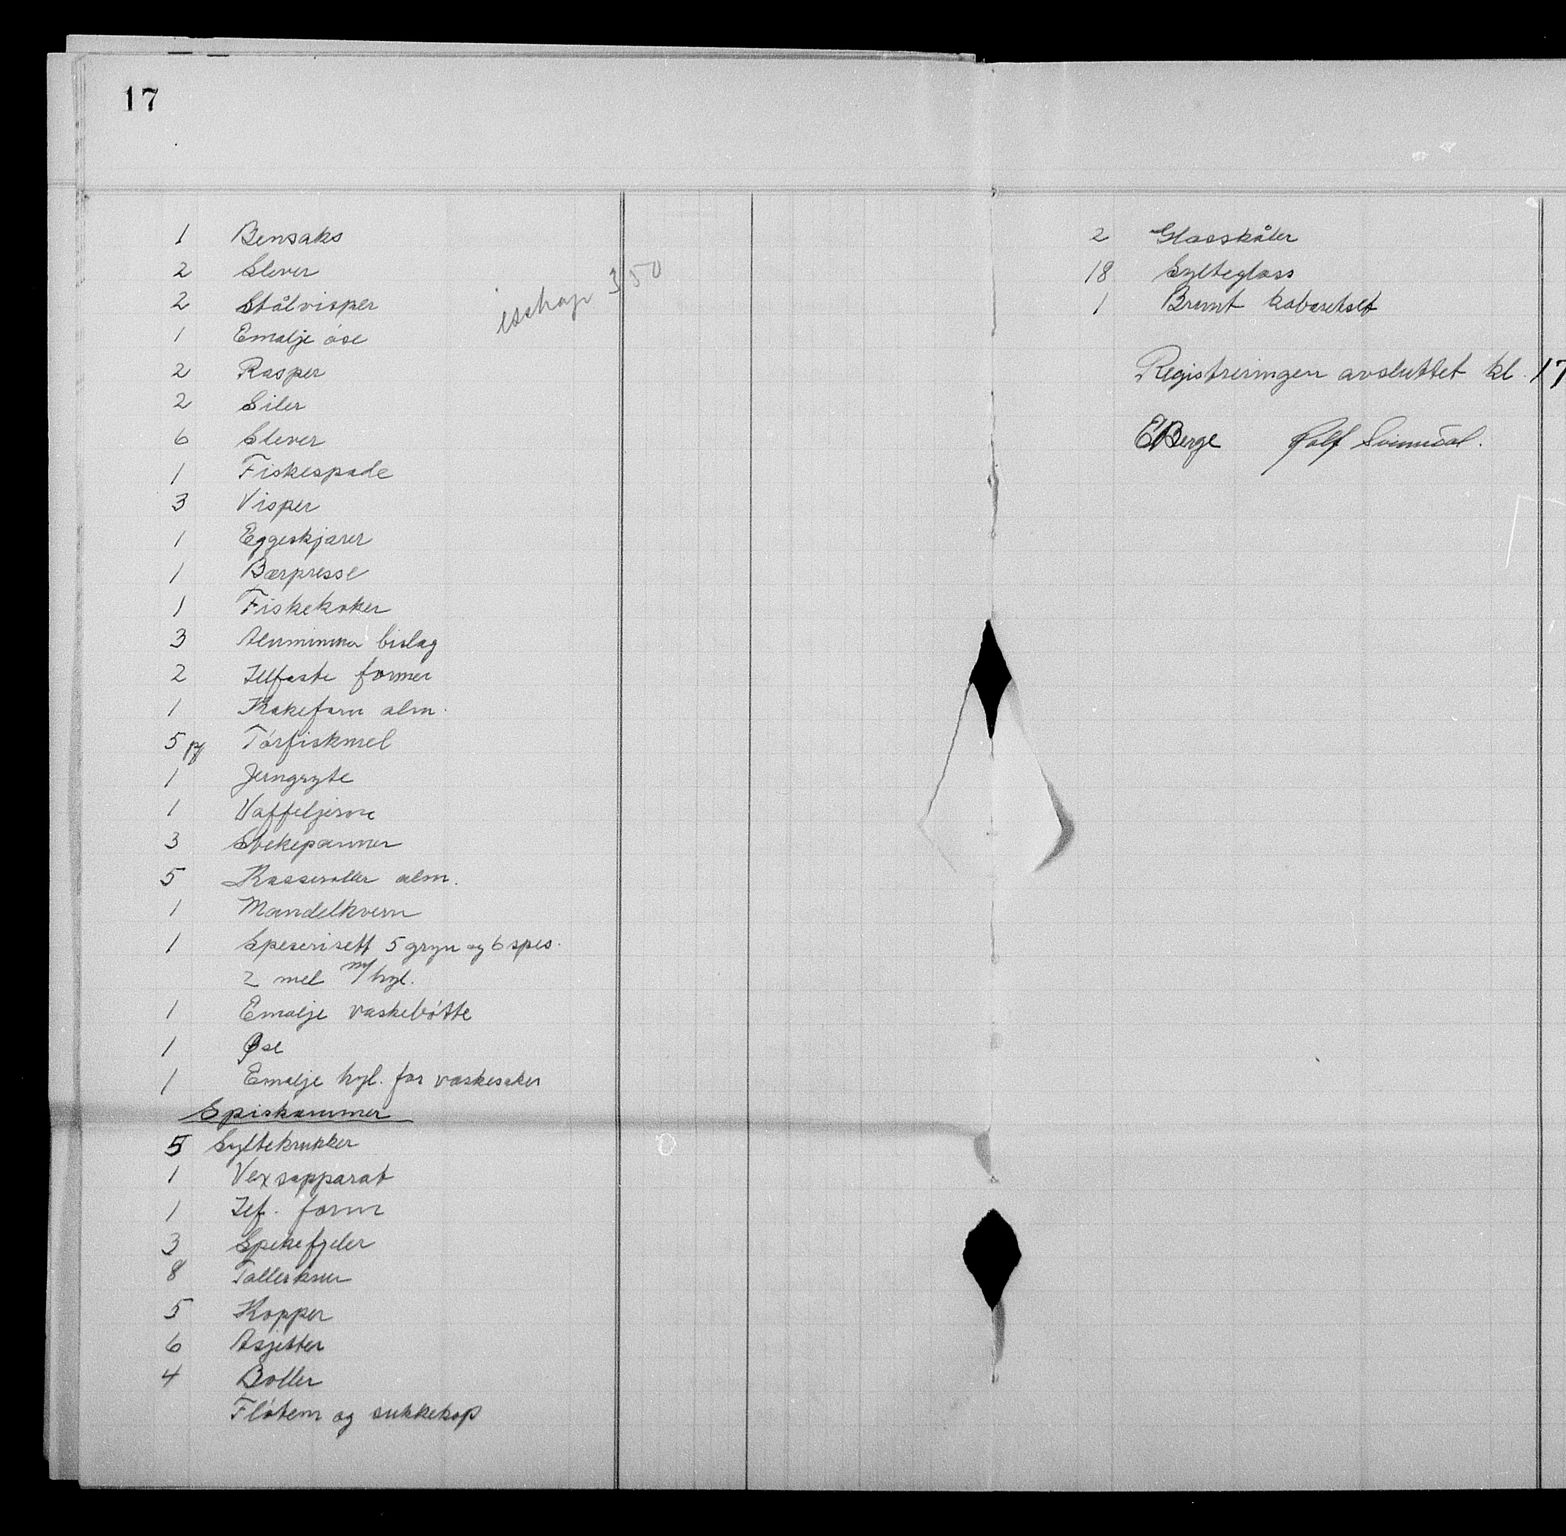 17
1 Bensaks
2 Slever
2 Stålvisper
1 Emalje øse
isskap 350
2 Rasper
2 Siler
6 Slever
1 Fiskespade
3 Visper
1 Eggeskjærer
1 Bærpresse
1 Fiskekoker
3 bislag
2 Ildfaste former
1 Kakeform alm.
5 pk Tørfiskmel
1 Jerngryte
1 Vaffeljern
3 Stekepanner
5 Kasseroller alm.
1 Mandelkvern
1 Speserisett 5 gryn og 6 spes.
2 mel m/ hyl.
1 Emalje vaskebøtte
1 Øse
1 Emalje hyl. for vaskesaker
Spiskammer
5 Syltekrukker
1 Vexsapparat
1 Ilf. form
3 Spekefjeler
8 Tallerkner
5 Kopper
6 Asjetter
4 Boller
Fløtem og sukkekop
2 Glasskåler
18 Sylteglass
1 Brunt kabaretsett
Registreringen avsluttet kl. 17
EBerge Rolf